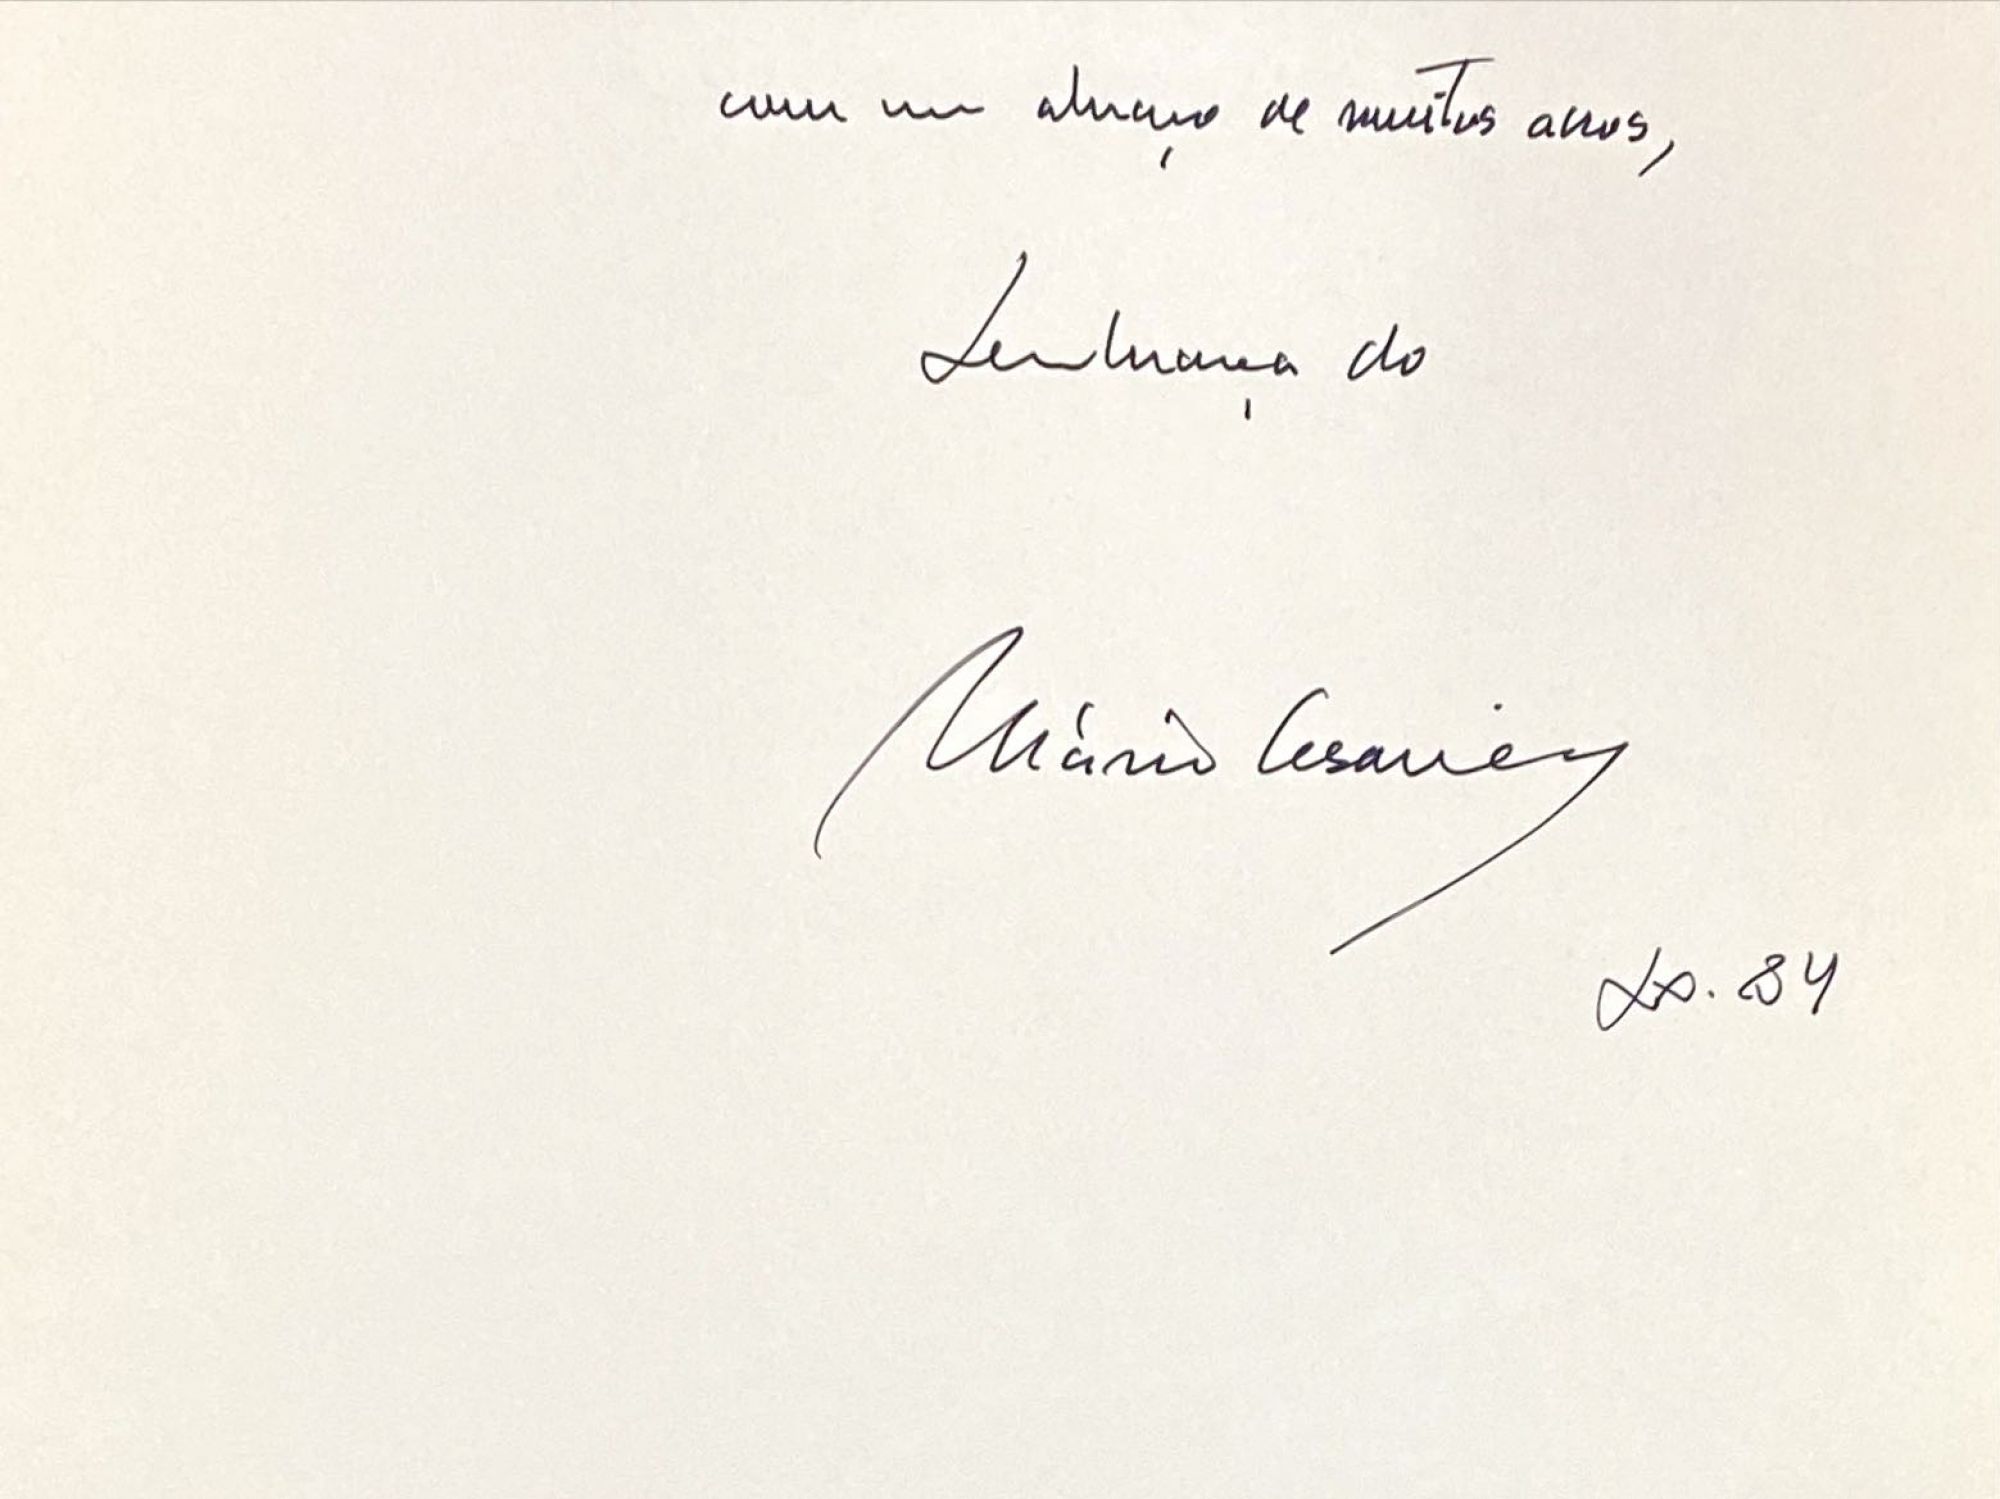 com um abraço de muitos anos,
Lembrança do
Mário Cesariny
Lx. 84